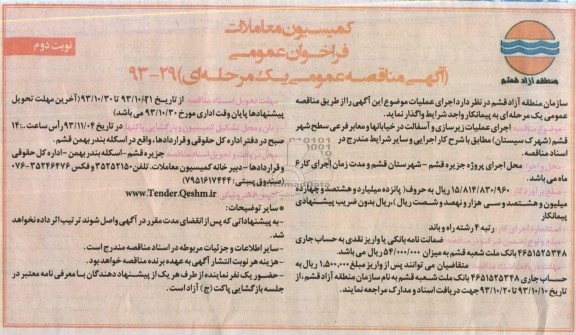 کمیسیون معاملات
فراخوان عمومی
(آگهی مناقصه عمومی یک مرحله‌ای) ۲۹-۹۳
نوبت دوم
منطقه آزاد قشم
سازمان منطقه آزاد قشم در نظر دارد اجرای عملیات موضوع این آگهی را از طریق مناقصه
عمومی یک مرحله ای به پیمانکار واجد شرایط واگذار نماید.
موضوع مناقصه: اجرای عملیات زیرسازی و آسفالت در خیابانها و معابر فرعی سطح شهر
قشم (شهرک سیستان) مطابق با شرح کار اجرایی و سایر شرایط مندرج در
اسناد مناقصه.
محل اجرای پروژه جزیره قشم - شهرستان قشم و مدت زمان اجرای کار ۶
ماه می باشد.
۱۵/۸۱۴/۸۳۰/۹۶۰ ریال به حروف( پانزده میلیارد و هشتصد و چهارده
میلیون و هشتصد و سی هزار و نهصد و شصت ریال)، ریال بدون ضریب پیشنهادی
پیمانکار
رتبه ۴ رشته راه و باند
ضمانت نامه بانکی یا واریز نقدی به حساب جاری
۴۶۵۱۵۲۵۳۴۸ بانک ملت شعبه قشم به میزان ۵۴۰/۰۰۰/۰۰۰ ریال می باشد.
متقاضیان می توانند پس از واریز مبلغ ۱,۵۰۰,۰۰۰ ریال به
حساب جاری ۴۶۵۱۵۲۵۳۴۸ بانک ملت شعبه قشم به نام سازمان منطقه آزاد قشم، از
تاریخ ۹۳/۱۰/۱۰ تا ۹۳/۱۰/۲۰ جهت دریافت اسناد و مدارک مراجعه نمایند.
مهلت تحویل اسناد مناقصه: از تاریخ ۹۳/۱۰/۲۱ تا ۹۳/۱۰/۳۰ (آخرین مهلت تحویل
پیشنهادها پایان وقت اداری مورخ ۹۳/۱۰/۳۰ می باشد)
زمان و محل تشکیل کمیسیون و بازگشایی پاکتها: در تاریخ ۹۳/۱۱/۰۴ رأس ساعت ۱۴:۰۰
صبح در دفتر اداره کل حقوقی و قراردادها، واقع در اسکله بندر بهمن قشم.
محل دریافت و تحویل اسناد مناقصه: جزیره قشم - اسکله بندر بهمن - اداره کل حقوقی
و قراردادها - دبیر خانه کمیسیون معاملات. تلفن: ۳۵۲۵۲۱۵۰ و فکس ۳۵۲۴۶۴۷۶-۰۷۶
(صندوق پستی: ۷۹۵۱۶۱۴۴۴۴)
www.Tender.Qeshm.ir
* سایر توضیحات:
- به پیشنهاداتی که پس از انقضای مدت مقرر در آگهی واصل شوند ترتیب اثر داده نخواهد
شد.
- سایر اطلاعات و جزئیات مربوطه در اسناد مناقصه مندرج است.
- هزینه هر نوبت انتشار آگهی به عهده برنده مناقصه خواهد بود.
- حضور یک نفر نماینده از طرف هر یک از پیشنهاد دهندگان با معرفی نامه معتبر در
جلسه بازگشایی پاکت (ج) آزاد است.